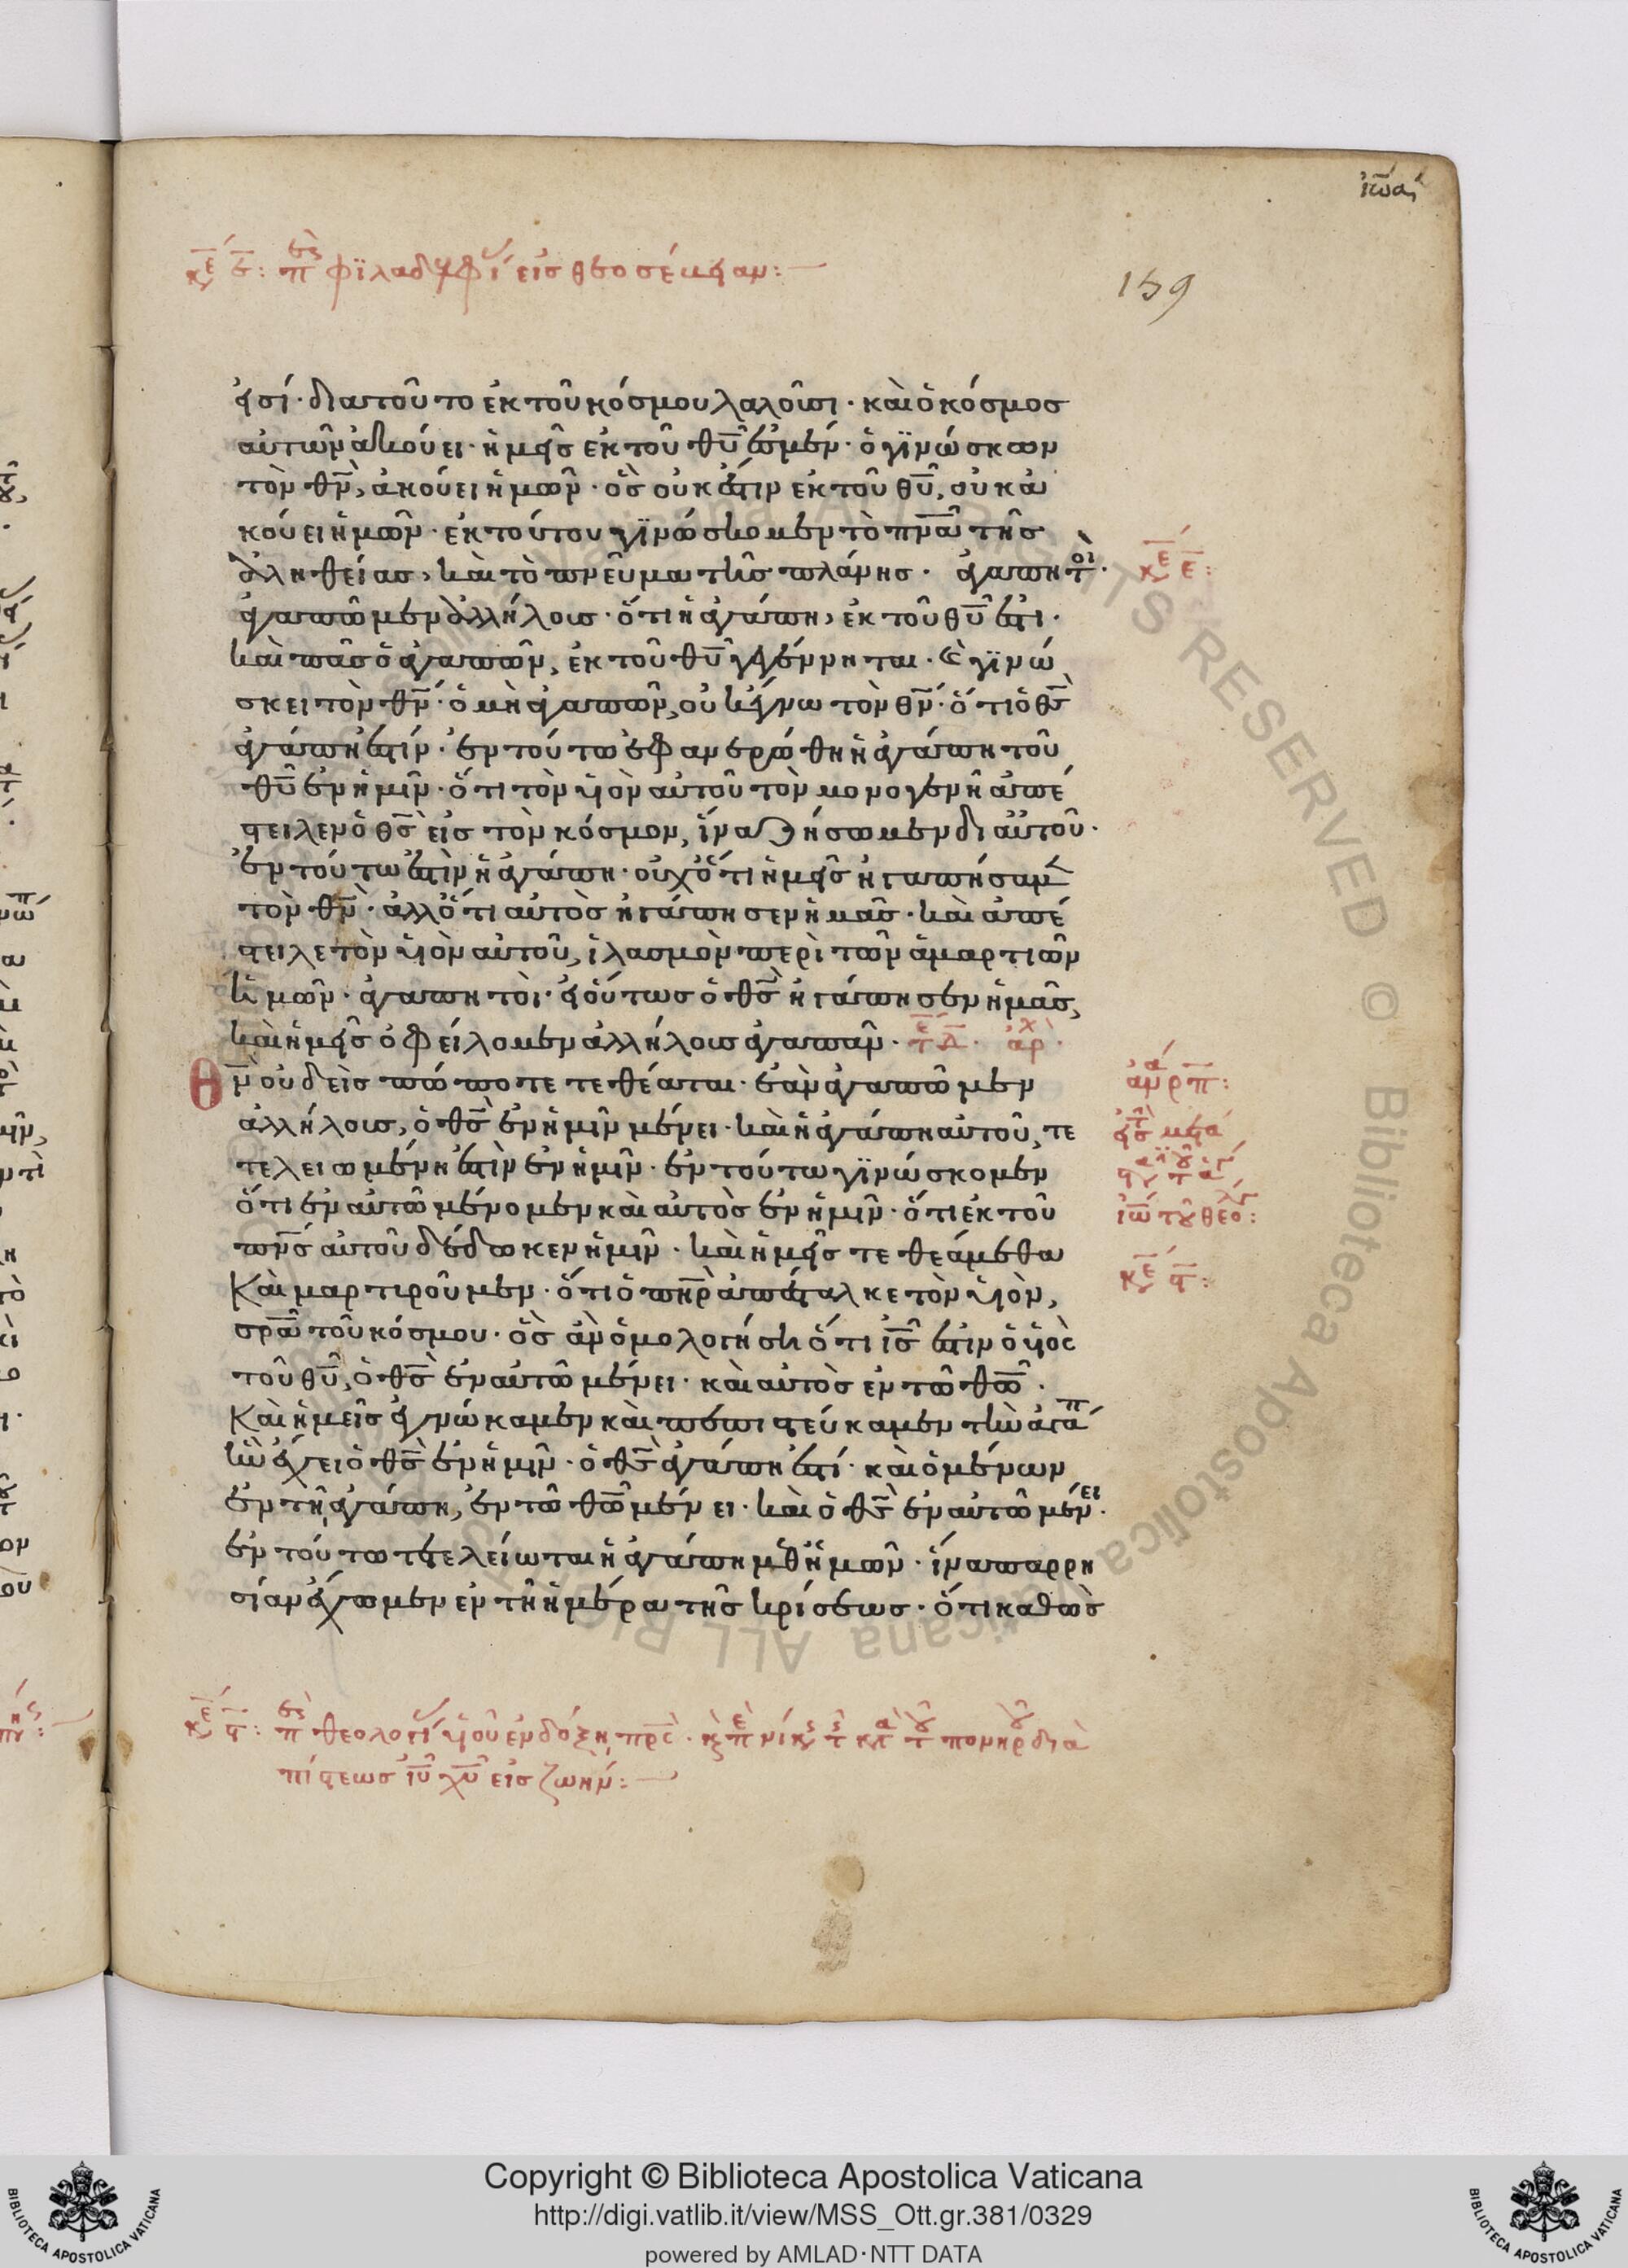 159
εἰσί· διατοῦτο ἐκ τοῦ κόσμου λαλοῦσι· καὶ ὁ κόσμος
αὐτῶν ἀκούει· ἡμεῖς ἐκ τοῦ θυ̅ ἐσμέν· ὁ γϊνώσκων
τὸν θν̅, ἀκούει ἡμῶν· ὃς οὐκ ἔστιν ἐκ τοῦ θυ̅, οὐκ ἀ
κούει ἡμῶν· ἐκ τούτου γϊνώσκομεν τὸ πνα̅ τῆς
ἀληθείας, καὶ τὸ πνεῦμα τῆς πλάνης· ἀγαπητοὶ·
ἀγαπῶμεν ἀλλήλους· ὅτι ἡ ἀγάπη, ἐκ τοῦ θυ̅ ἐστι·
καὶ πᾶς ὁ ἀγαπῶν, ἐκ τοῦ θυ̅ γεγέννηται· καὶ γϊνώ
σκει τὸν θν̅· ὁ μὴ ἀγαπῶν, οὐκ ἔγνω τὸν θν̅· ὅτι ὁ θς̅
ἀγάπη ἐστίν· ἐν τούτω ἐφανερώθη ἡ ἀγάπη τοῦ
θυ̅ ἐν ἡμῖν· ὅτι τὸν υἱὸν αὐτοῦ τὸν μονογενῆ ἀπέ
στειλεν ὁ θς̅ εἰς τὸν κόσμον, ἵνα ζήσωμεν δι αὐτοῦ·
ἐν τούτω ἐστὶν ἡ ἀγάπη· οὐχ ὅτι ἡμεῖς ἠγαπήσαμεν
τὸν θν̅· ἀλλ ὅτι αὐτὸς ἠγάπησεν ἡμᾶς· καὶ ἀπέ
στειλε τὸν υἱὸν αὐτοῦ, ἱλασμὸν περὶ τῶν ἁμαρτιῶν
ἡμῶν· ἀγαπητοὶ· εἰ οὕτως ὁ θς̅ ἠγάπησεν ἡμᾶς,
καὶ ἡμεῖς ὀφείλομεν ἀλλήλους ἀγαπᾶν·
Θν̅ οὐδεὶς πώποτε τεθέαται· ἐὰν ἀγαπῶμεν
ἀλλήλους, ὁ θς̅ ἐν ἡμῖν μένει· καὶ ἡ ἀγάπη αὐτοῦ, τε
τελειωμένη ἐστὶν ἐν ἡμῖν· ἐν τούτω γϊνώσκομεν
ὅτι ἐν αὐτῶ μένομεν καὶ αὐτὸς ἐν ἡμῖν· ὅτι ἐκ τοῦ
πνς̅ αὐτοῦ δέδωκεν ἡμῖν· καὶ ἡμεῖς τεθεάμεθα
Καὶ μαρτιροῦμεν· ὅτι ὁ πηρ̅ ἀπέσταλκε τὸν υἱὸν,
σρα̅ τοῦ κόσμου· ὃς ἂν ὁμολογήση ὅτι ις̅ ἐστιν ὁ υἱος
τοῦ θυ̅, ὁ θς̅ ἐν αὐτῶ μένει· καὶ αὐτὸς ἐν τῶ θω̅·
Καὶ ἡμεῖς ἐγνώκαμεν καὶ πεπιστεύκαμεν τὴν ἀγάπ
ἣν ἔχει ὁ θς̅ ἐν ἡμῖν· ὁ θς̅ ἀγάπη ἐστί· καὶ ὁ μένων
ἐν τῆ ἀγάπη, ἐν τῶ θω̅ μένει· καὶ ὁ θς̅ ἐν αὐτῶ μένει·
ἐν τούτω τετελείωται ἡ ἀγάπη μεθ ἡμῶν· ἵνα παρρη
σίαν ἔχωμεν ἐν τῆ ἡμέρα τῆς κρίσεως· ὅτι καθὼς
πίστεως ιυ̅ χυ̅ εἰς ζωήν:
Copyright © Biblioteca Apostolica Vaticana
http://digi.vatlib.it/view/MSS_Ott.gr.381/0329
powered by AMLAD·NTT DATA
BIBLIOTECA APOSTOLICA VATICANA
BIBLIOTECA APOSTOLICA VATICANA